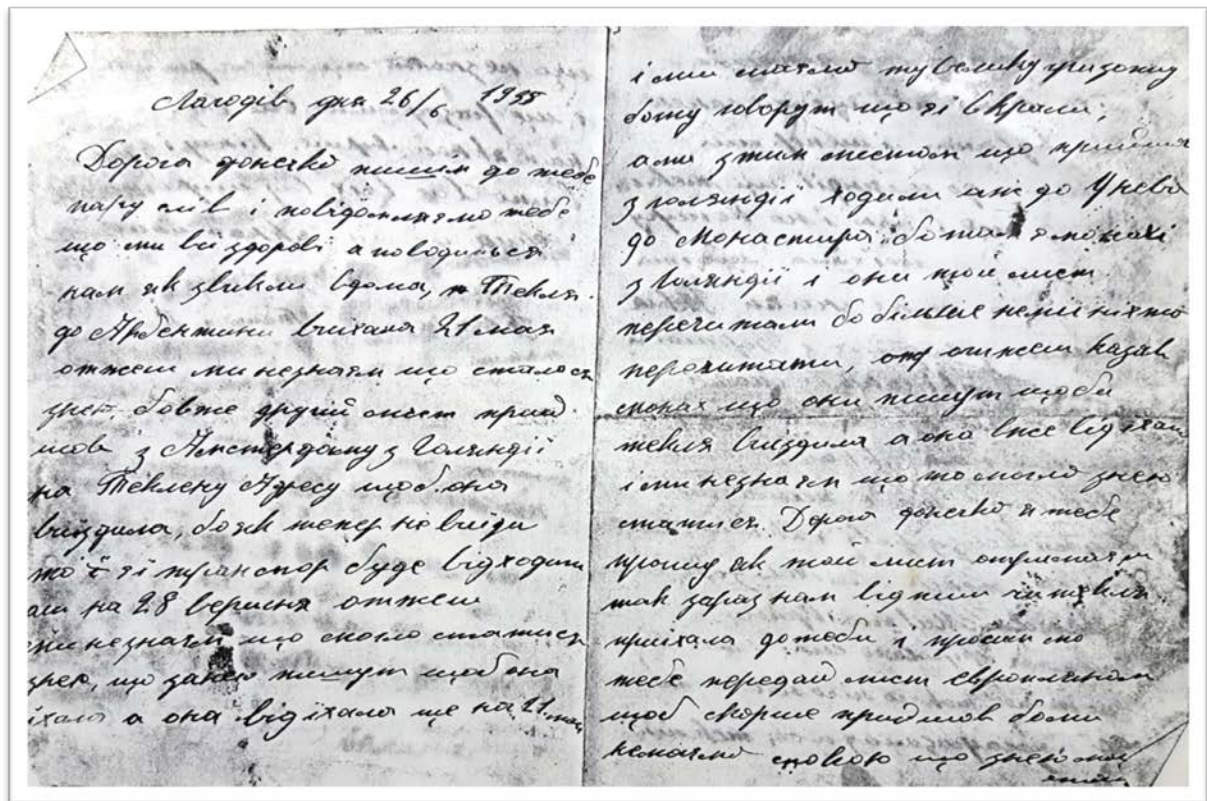 Лагодів дня 26/6 1938
Дорога донько пишім до тебе
пару слів і повідомляємо тебе
що ми всі здорові а поводиться
нам як звикли вдома, Текля
до Арґентини виїхала 21 мая
отжеш ми незнаєм що сталося
знею бовже другий лист прий
шов з Амстердаму з Голяндії
на Теклену Адресу щоб она
виїздила, бо як тепер не виїди
то її транспор буде відходити
аш на 28 вересня отжеш
ми незнаєм що могло статися
знею, що занею пишут щоб она
їхала а она відїхала ще на 21 мая
і ми мали ту велику
бому говорут що її вкрали,
а ми з тим листом що прийшов
з голяндії ходили аж до Унева
до Монастиря, бо там є монахі
з Голяндії і они той лист
перечитали бо більше нема ніхто
перечитати, отжеш казав
монах що они пишут щоби
текля виїздила а она вже відїхала
і ми незнаєм що то могло знею
статися. Дорога донько я тебе
прошу як той лист отримаєш
так зараз нам відпиши чи текля
приїхала до тебе і просимо
тебе передай лист
щоб скорше прийшов боми
немаємо спокою що знею